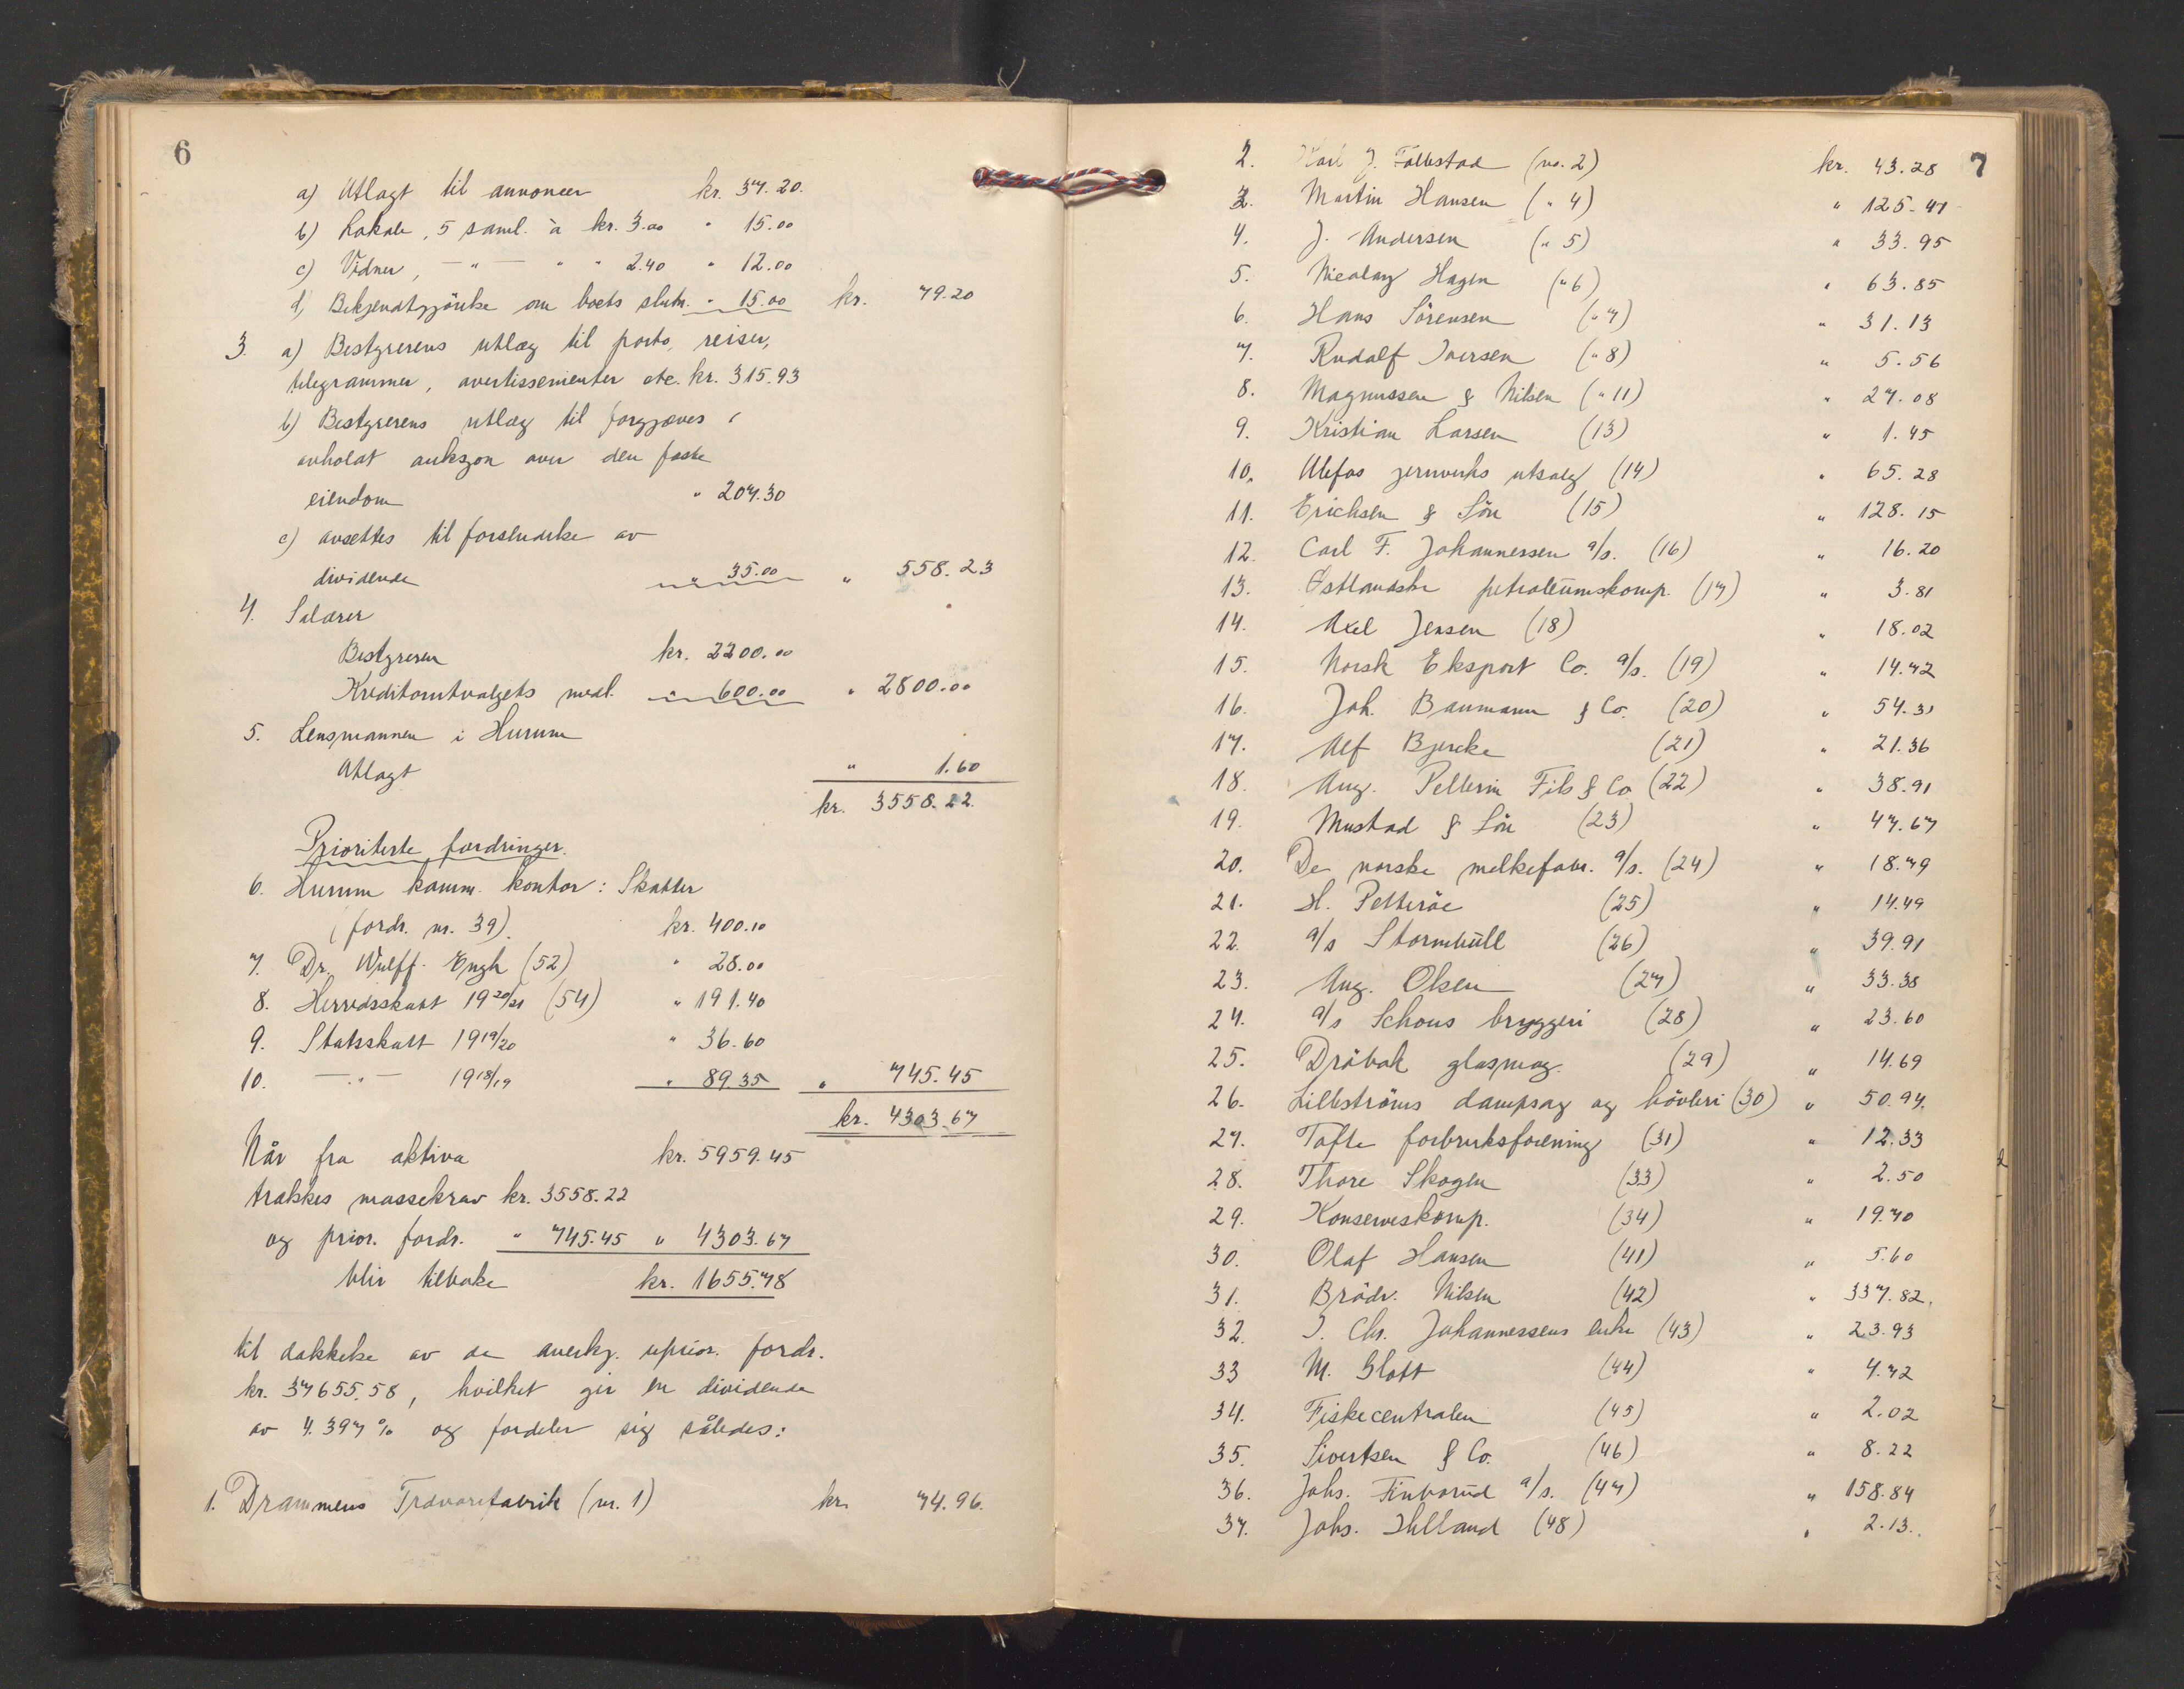 6
a) Utlagt til annoncer kr. 37.20.
b) Lokale, 5 saml. à kr. 3.00 " 15.00
c) Vidner, — " — " " 2.40 " 12.00
d) Bekjendtgjörelse om boets slutn. " 15.00 kr. 79.20
3. a) Bestyrerens utlæg til porto, reiser,
telegrammer, avertissementer etc. kr. 315.93
b) Bestyrerens utlæg til forgjæves
avholdt auksjon over den faste
eiendom " 207.30
c) avsettes til forsendelse av
dividende " 35.00 " 558.23
4. Salærer
Bestyreren kr. 2200.00
Kreditorutvalgets medl. " 600.00 " 2800.00
5. Lensmannen i Hurum
Utlagt " 1.60
kr. 3558.22.
Prioriterte fordringer.
6. Hurum komm. kontor: Skatter
(fordr. nr. 39). kr. 400.10
7. Dr. Wulff-Engh (52) " 28.00
8. Herredsskatt 1920/21 (54) " 191.40
9. Statsskatt 1919/20 " 36.60
10. — " — 1918/19 " 89.35 " 745.45
kr. 4303.67
Når fra aktiva kr. 5959.45
trækkes massekrav kr. 3558.22
og prior. fordr. " 745.45 " 4303.67
blir tilbake kr. 1655.78
til dækkelse av de anerkj. uprior. fordr.
kr. 37655.58, hvilket gir en dividende
av 4.397 % og fordeler sig således:
1. Drammens Trævarefabrik (nr. 1) kr. 74.96.
7
2. Karl J. Follestad (no. 2) kr. 43.28
3. Martin Hansen (" 4) " 125.41
4. J. Andersen (" 5) " 33.95
5. Nicolay Hagen (" 6) " 63.85
6. Hans Sörensen (" 7) " 31.13
7. Rudolf Iversen (" 8) " 5.56
8. Magnussen & Nilsen (" 11) " 27.08
9. Kristian Larsen (13) " 1.45
10. Ulefos jernverks utsalg (14) " 65.28
11. Erichsen & Sön (15) " 128.15
12. Carl F. Johannessen a/s. (16) " 16.20
13. Østlandske petroleumskomp. (17) " 3.81
14. Axel Jensen (18) " 18.02
15. Norsk Eksport Co. a/s. (19) " 14.72
16. Joh. Baumann & Co. (20) " 54.31
17. Alf Bjercke (21) " 21.36
18. Aug. Pellerin Fils & Co (22) " 38.91
19. Mustad & Sön (23) " 47.67
20. De norske melkefabr. a/s. (24) " 18.79
21. H. Petteröe (25) " 14.49
22. a/s Stormbull (26) " 39.91
23. Aug. Olsen (27) " 33.38
24. a/s Schous bryggeri (28) " 23.60
25. Dröbak glasmag. (29) " 14.69
26. Lilleströms dampsag og hövleri (30) " 50.94.
27. Tofte forbruksforening (31) " 12.33
28. Thore Skogen (33) " 2.50
29. Konserveskomp. (34) " 19.70
30. Olaf Hansen (41) " 5.60
31. Brödr. Nilsen (42) " 337.82.
32. J. Chr. Johannessens enke (43) " 23.93
33 M. Glott (44) " 4.72
34. Fiskecentralen (45) " 2.02
35. Sivertsen & Co. (46) " 8.22
36. Johs. Finborud a/s. (47) " 158.84
37. Johs. Ihlland (48) " 2.13.